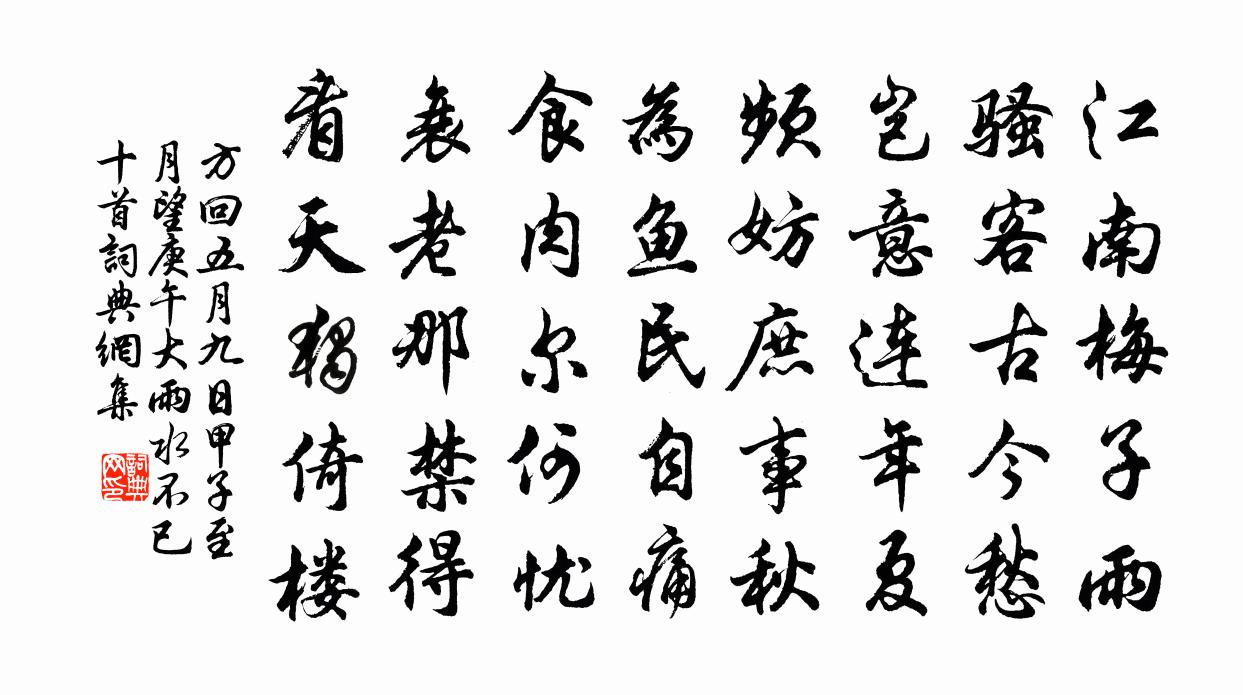 江南梅子雨
骚客古今愁
岂意连年夏
频妨庶事秋
為鱼民自痛
食肉尔何忧
衰老那禁得
看天独倚楼
方回五月九日甲子至
月望庚午大雨水不已
十首詞典網集
詞典网印